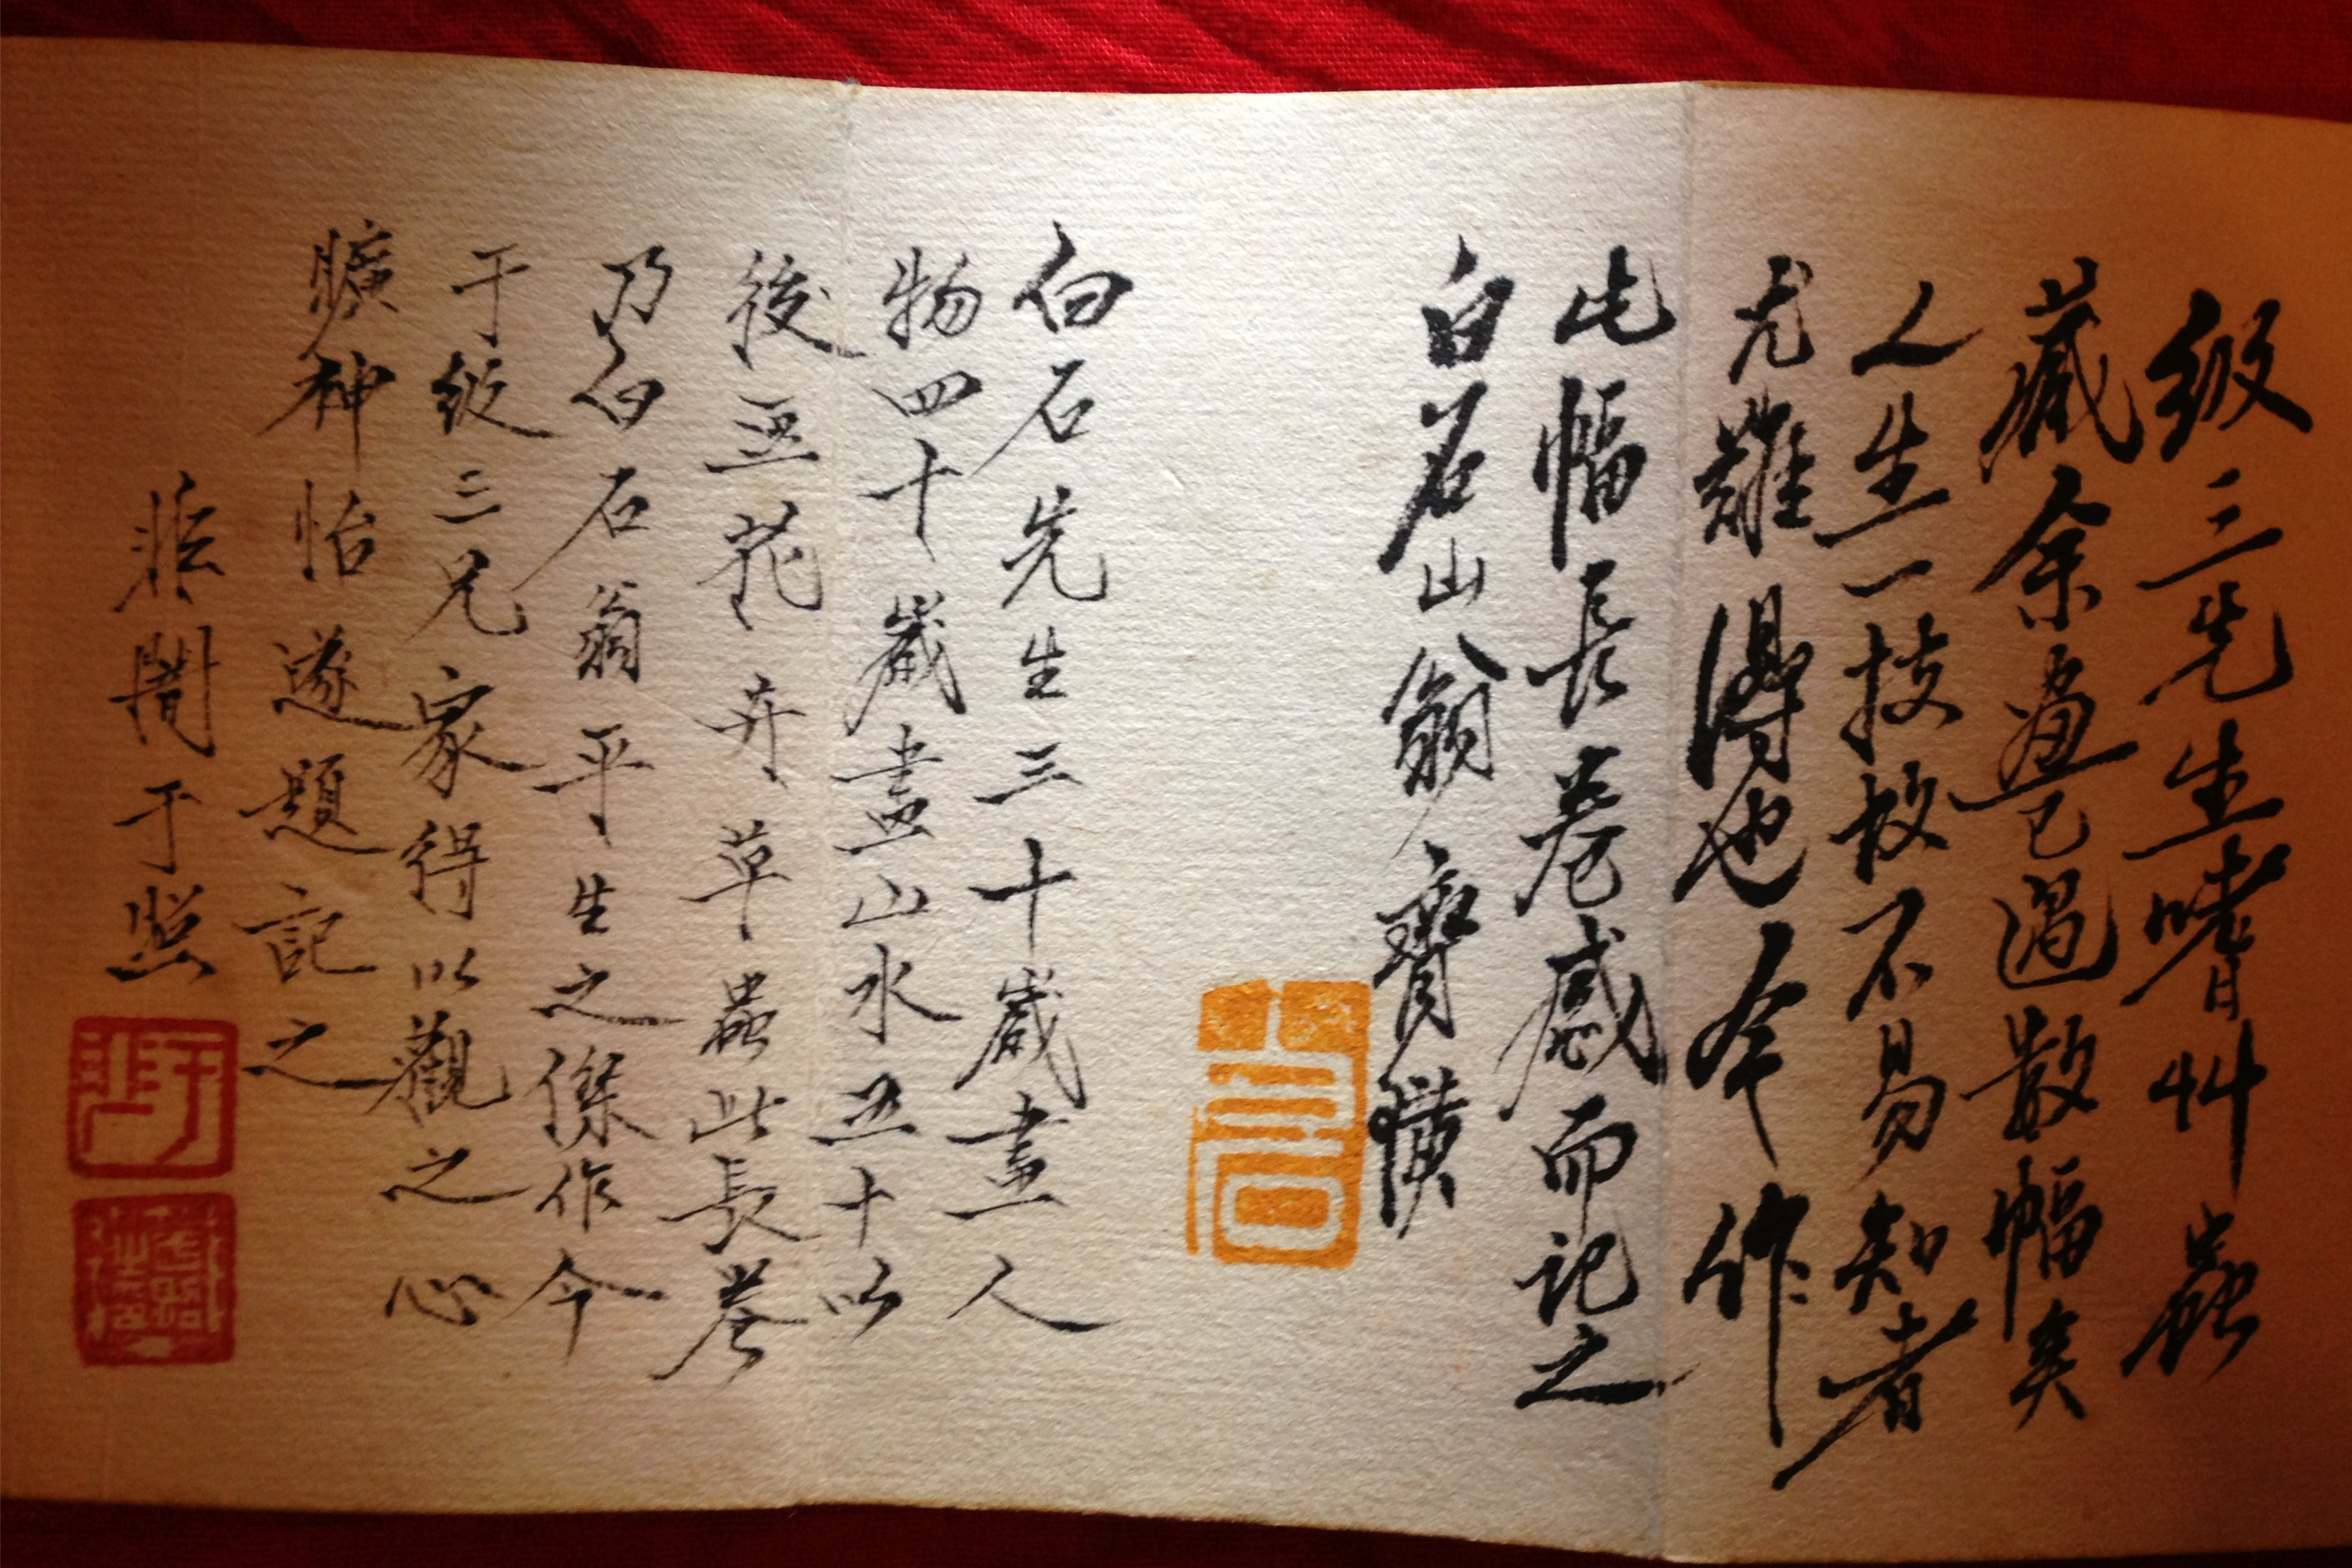 級三先生嗜艸蟲
藏余畫已過散幅矣
人生一技故不易知者
尤難得也今作
此幅長卷感而記之
白石山翁齊璜
白石先生三十歲畫人
物四十歲畫山水五十以
後亞花卉草蟲此長卷
乃白石翁平生之傑作今
于級三兄家得以觀之心
曠神怡遂題記之
非闇于照